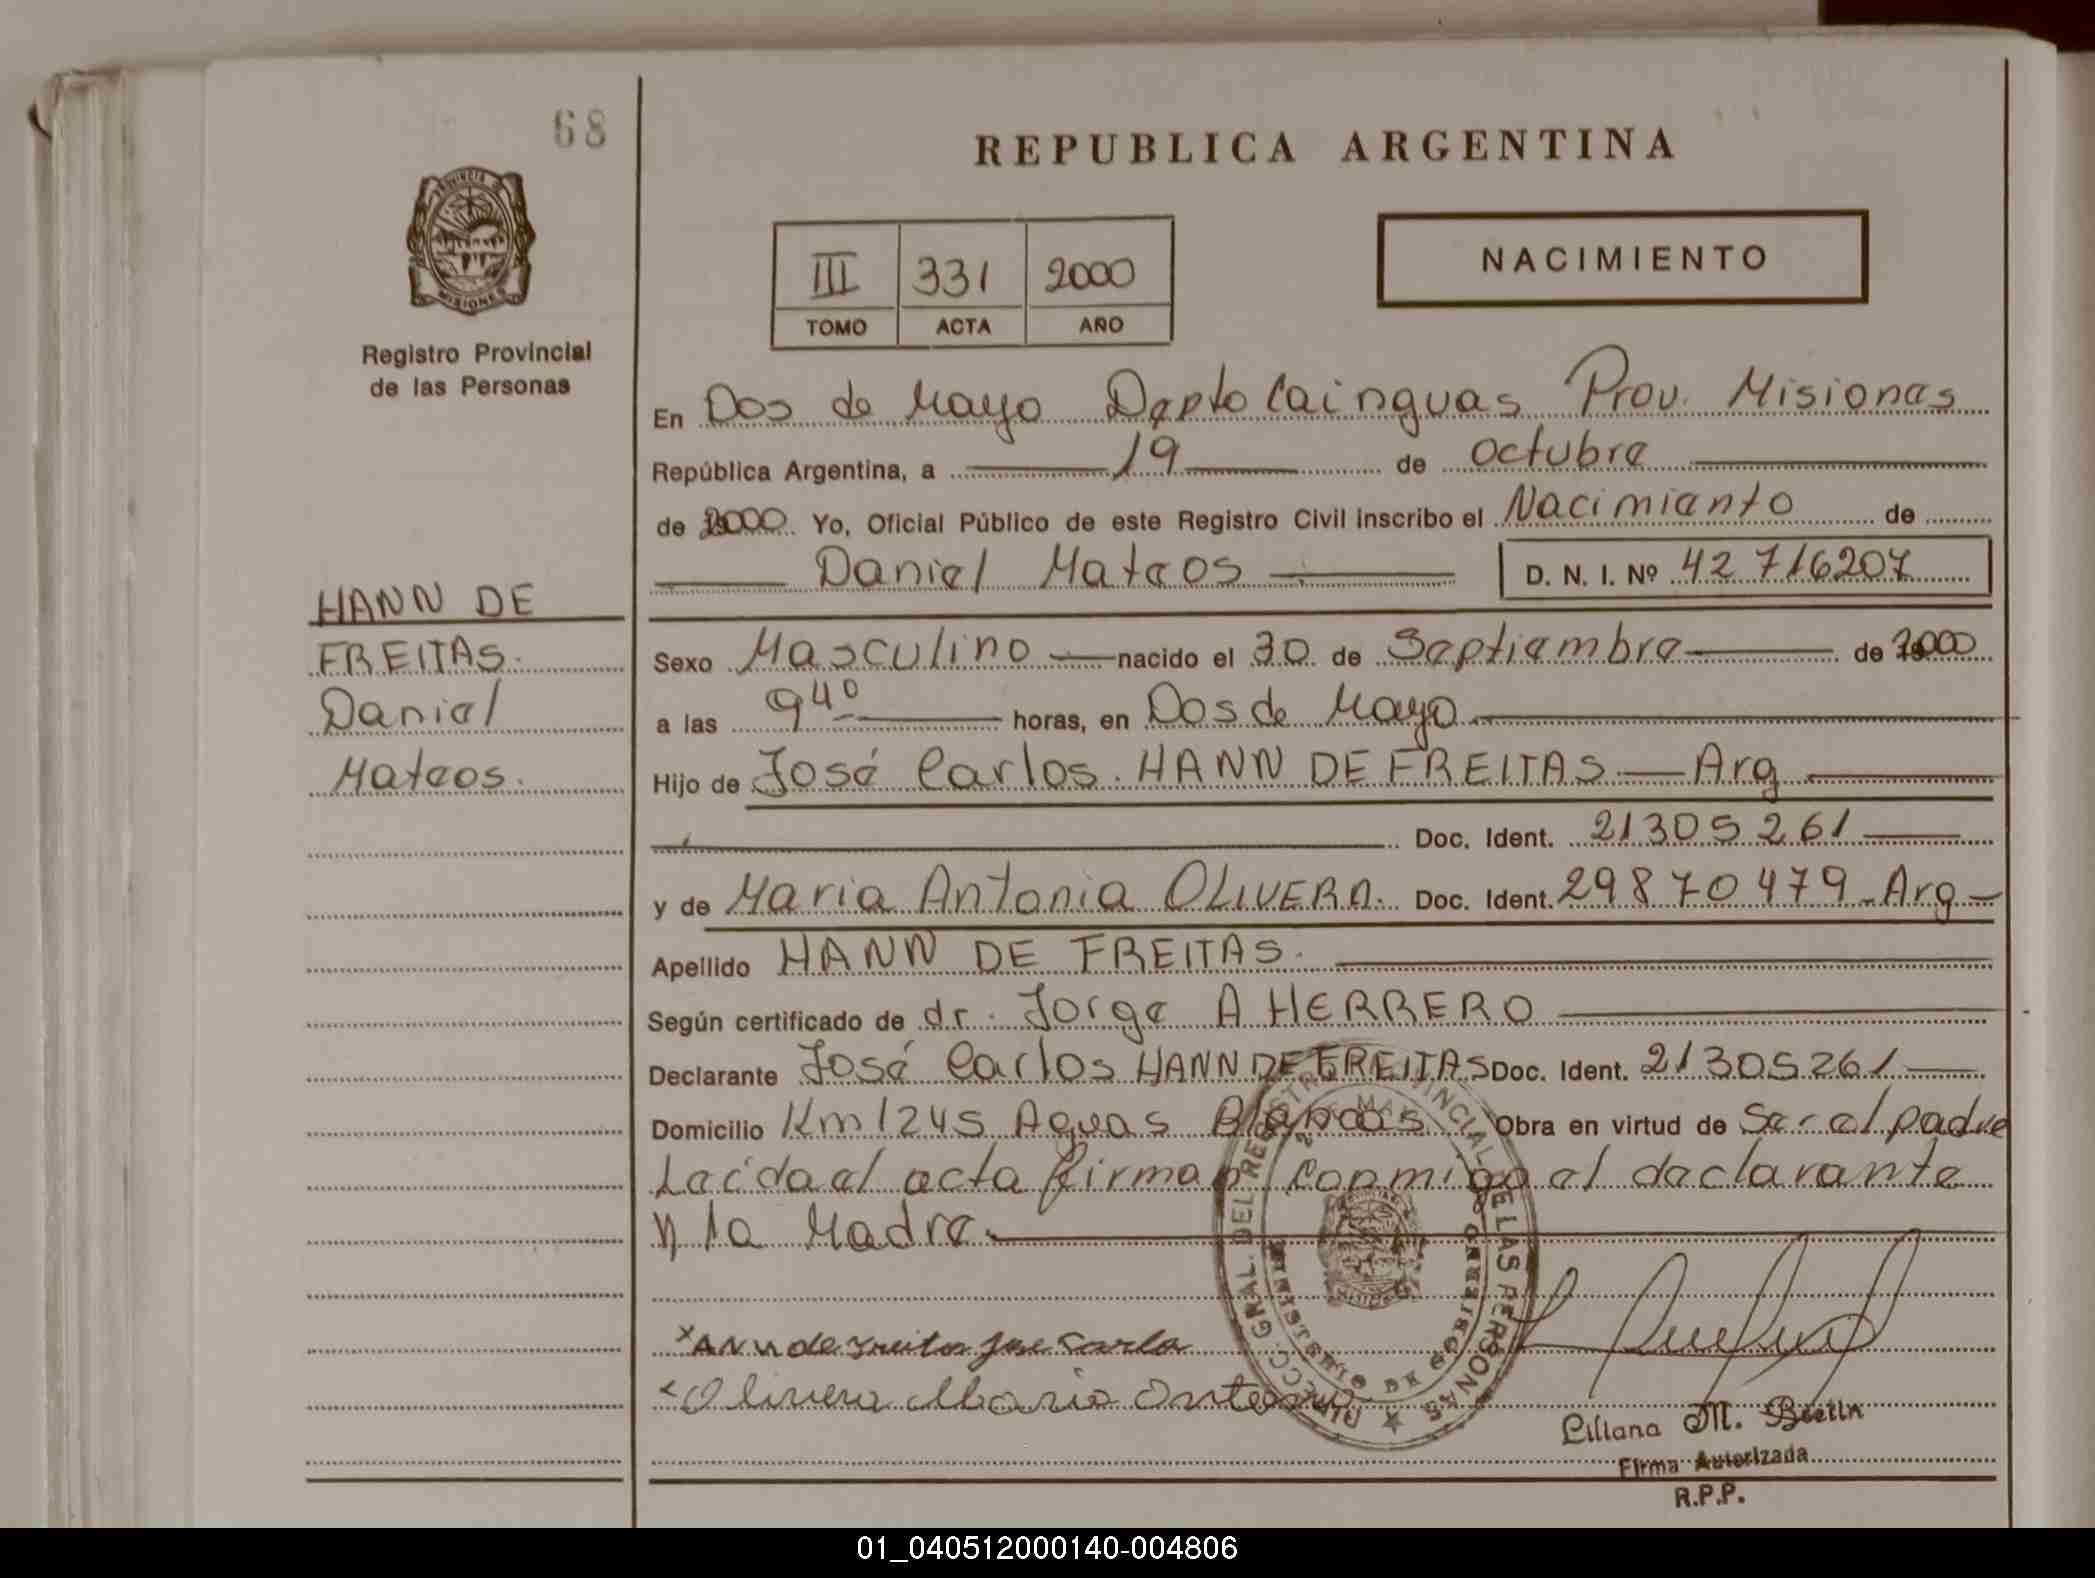 68
REPUBLICA ARGENTINA
PROVINCIA DE
MISIONES
Registro Provincial
de las Personas
III 331 2000
TOMO ACTA AÑO
NACIMIENTO
En Dos de Mayo Depto Cainguas Prov. Misiones
República Argentina, a 19 de octubre
de 2000 Yo, Oficial Público de este Registro Civil inscribo el Nacimiento de
Daniel Mateos D. N. I. Nº 42 716207
HANN DE
FREITAS.
Daniel
Mateos.
Sexo Masculino nacido el 30 de Septiembre de 2000
a las 9 40 horas, en Dos de Mayo
Hijo de José Carlos. HANN DE FREITAS Arg
Doc. Ident. 21305261
y de Maria Antonia OLIVERA. Doc. Ident. 29870479 Arg
Apellido HANN DE FREITAS.
Según certificado de dr. Jorge A HERRERO
Declarante José Carlos HANN DE FREITAS Doc. Ident. 21305261
Domicilio Km 1245 Aguas Blancas Obra en virtud de Ser el padre
Leida el acta firman conmigo el declarante
y la Madre.
Olivera Maria Antonia
DIRECC. GRAL. DEL REGISTRO PROVINCIAL DE LAS PERSONAS
MINISTERIO DE GOBIERNO
Liliana M.
Firma Autorizada
R.P.P.
01_040512000140-004806